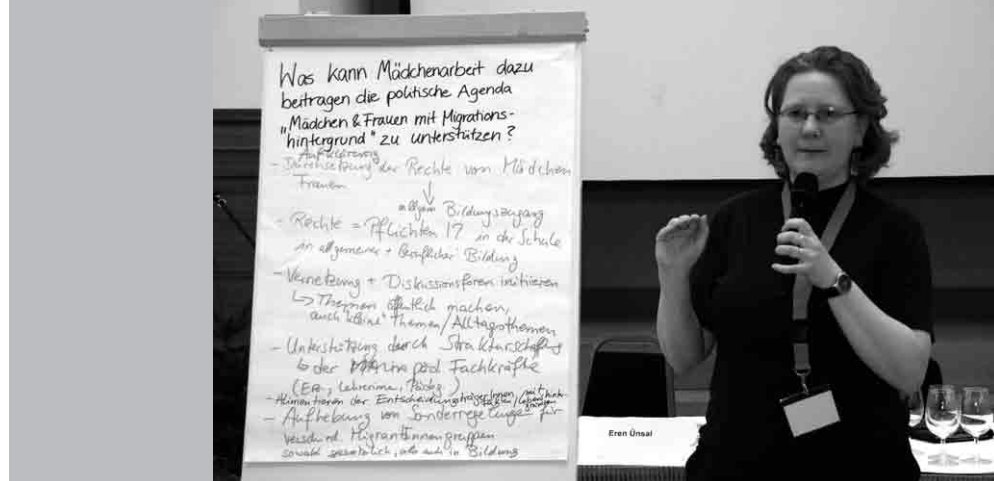 Was kann Mädchenarbeit dazu
beitragen die politische Agenda
„Mädchen & Frauen mit Migrations-
hintergrund" zu unterstützen?
Aufklärung
- Durchsetzung der Rechte von Mädchen
Frauen
Bildungszugang
- Rechte = Pflichten !? in der Schule
in allgemeiner + beruflicher Bildung
- Vernetzung + Diskussionsforen initiieren
↳ Themen öffentlich machen,
auch "kleine" Themen/Alltagsthemen
- Unterstützung durch Strukturschaffung
↳ der päd. Fachkräfte
- der EntscheidungsträgerInnen
- Aufhebung von Sonderregelungen für
verschied. MigrantInnengruppen
sowohl, als auch in Bildung
Eren Ünsal